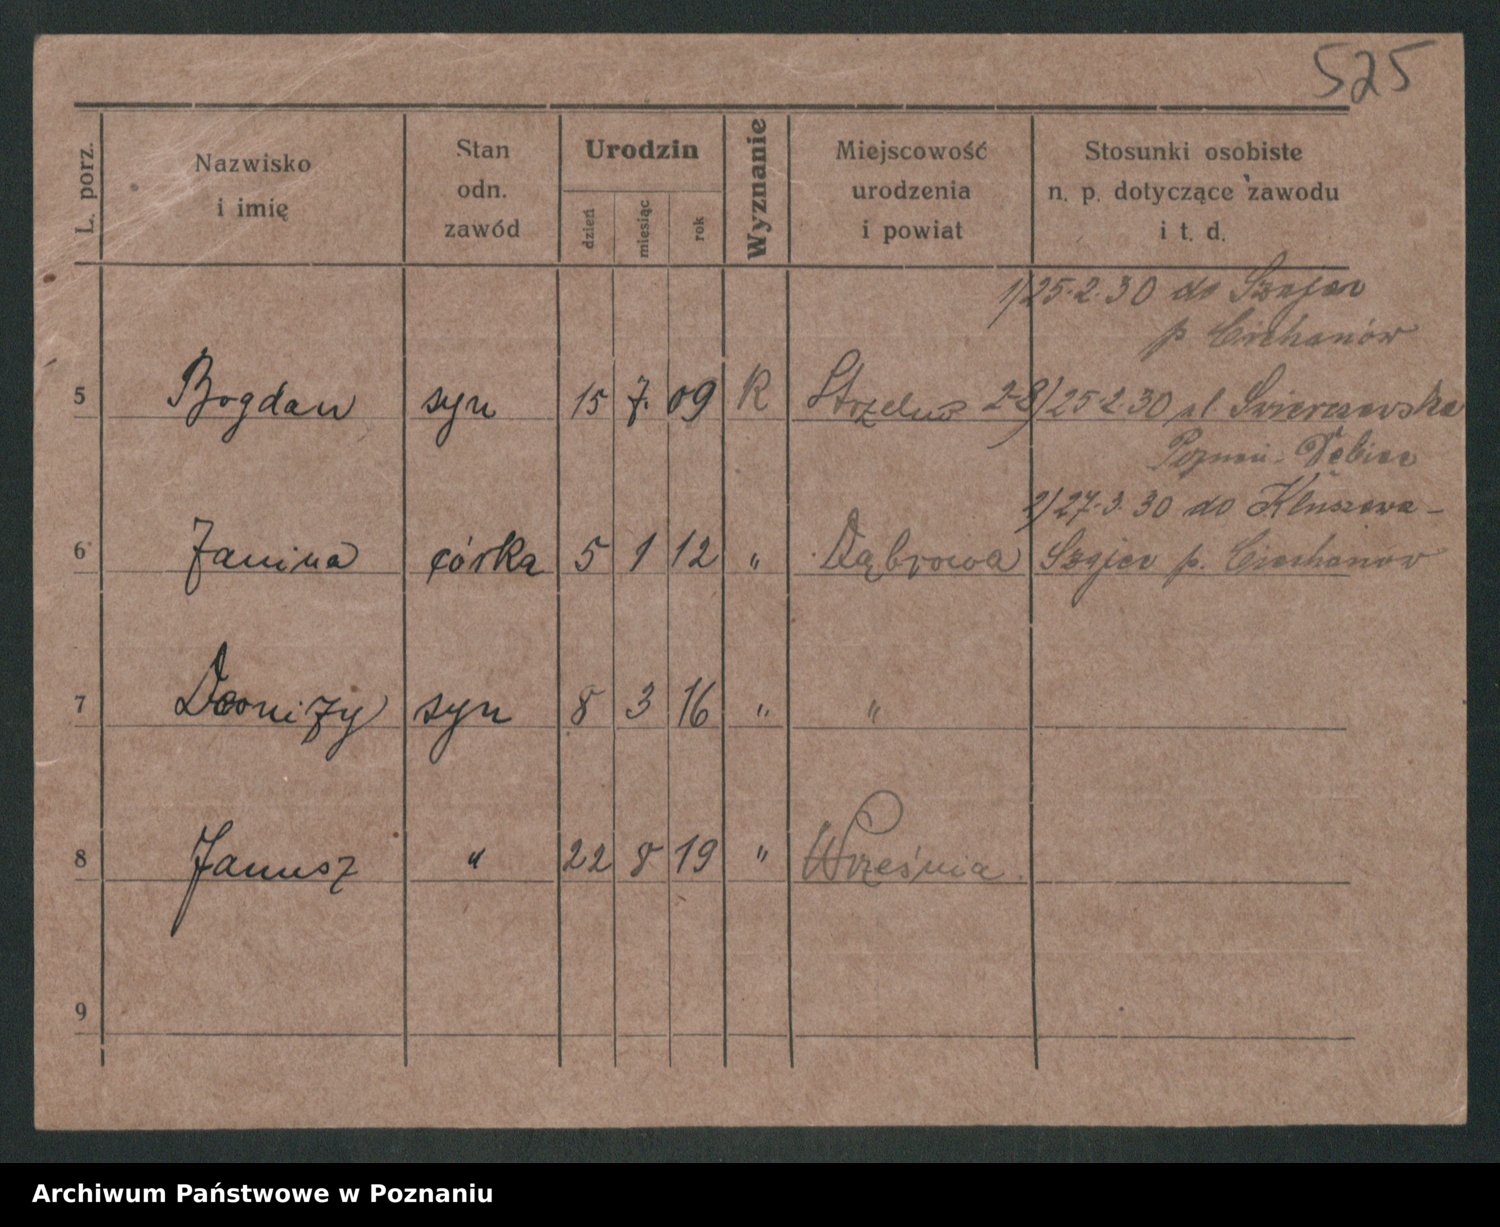 525
L. porz.
Nazwisko
i imię
Stan
odn.
zawód
Urodzin
dzień
miesiąc
rok
Wyznanie
Miejscowość
urodzenia
i powiat
Stosunki osobiste
n. p. dotyczące zawodu
i t. d.
1/25.2.30 do
p. Ciechanów
5 Bogdan syn 15 7. 09 R 2-8)/25 2 30
Poznań - Dębiec
2/27.3.30 do
6 Janina córka 5 1 12 " Dąbrowa p. Ciechanów
7 syn 8 3 16 " "
8 Janusz " 22 8 19 " Września
9
Archiwum Państwowe w Poznaniu